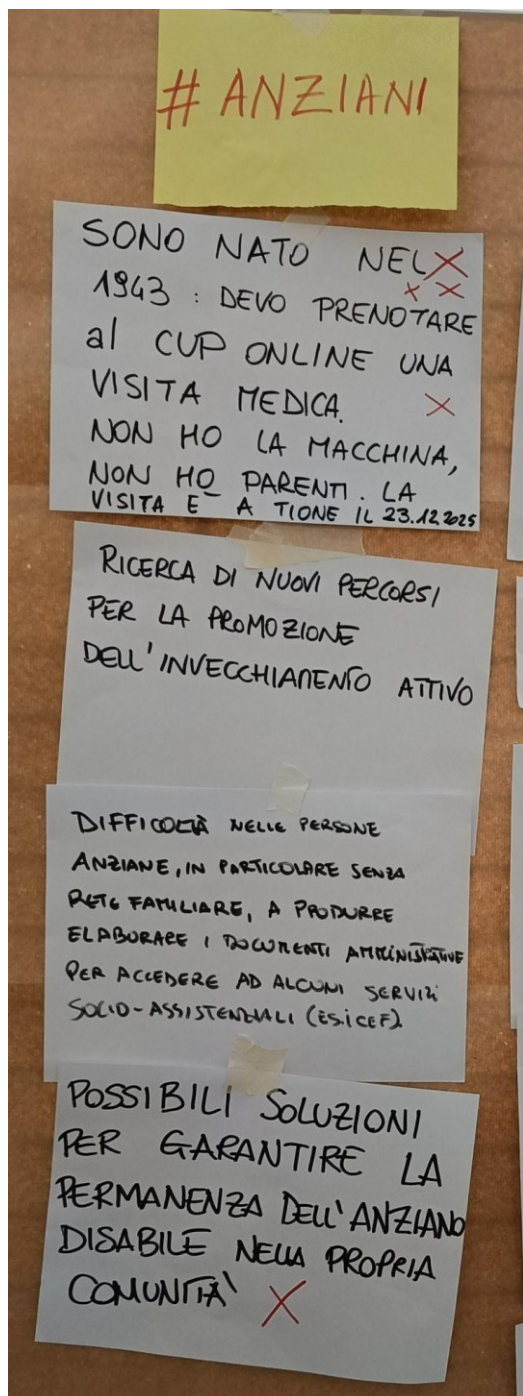 # ANZIANI
SONO NATO NEL
1943 : DEVO PRENOTARE
al CUP ONLINE UNA
VISITA MEDICA.
NON HO LA MACCHINA,
NON HO PARENTI. LA
VISITA E' A TIONE IL 23.12.2025
RICERCA DI NUOVI PERCORSI
PER LA PROMOZIONE
DELL'INVECCHIAMENTO ATTIVO
DIFFICOLTÀ NELLE PERSONE
ANZIANE, IN PARTICOLARE SENZA
RETE FAMILIARE, A PRODURRE
ELABORARE I DOCUMENTI AMMINISTRATIVE
PER ACCEDERE AD ALCUNI SERVIZI
SOCIO-ASSISTENZIALI (ES. ICEF).
POSSIBILI SOLUZIONI
PER GARANTIRE LA
PERMANENZA DELL'ANZIANO
DISABILE NELLA PROPRIA
COMUNITA'